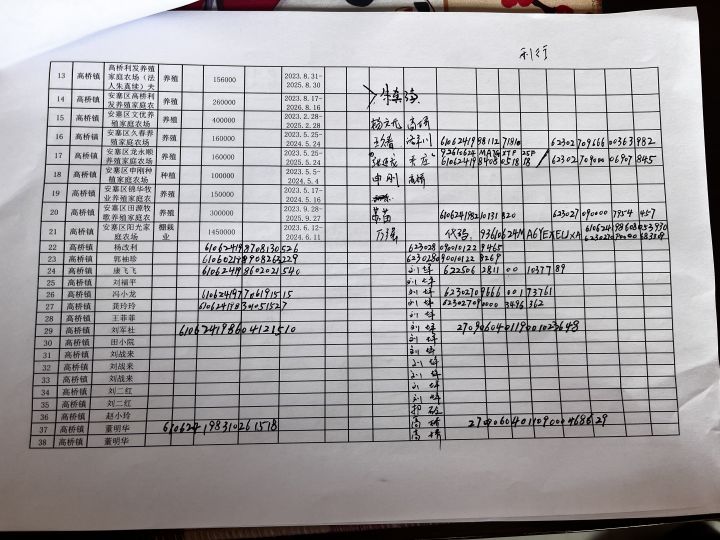 利行
13 高桥镇 高桥利发养殖家庭农场（法人朱真续）夫 养殖 156000 2023.8.31-2025.8.30
14 高桥镇 安塞区高桥利发养殖家庭农 养殖 260000 2023.8.17-2026.8.16
15 高桥镇 安塞区文优养殖家庭农场 养殖 400000 2023.2.28-2025.2.28 高桥
16 高桥镇 安塞区久春养殖家庭农场 养殖 160000 2023.5.25-2024.5.24
17 高桥镇 安塞区龙永顺养殖家庭农场 养殖 160000 2023.5.25-2024.5.24
18 高桥镇 安塞区申刚种植家庭农场 种植 100000 2023.5.5-2024.5.4 申刚 高桥
19 高桥镇 安塞区锦华牧业养殖家庭农 养殖 150000 2023.5.17-2024.5.16
20 高桥镇 安塞区田源牧歌养殖家庭农 养殖 300000 2023.9.28-2025.9.27 623027090000 7954 457
21 高桥镇 安塞区阳光家庭农场 棚栽业 1450000 2023.6.12-2024.6.11 代码:
22 高桥镇 杨改利 610624198708130526 623028 090010122 9465
23 高桥镇 郭袖珍 623028090010122 9269
24 高桥镇 康飞飞 610624198602021540 刘坪 622506 2811 00 1037789
25 高桥镇 刘福平 刘坪
26 高桥镇 冯小龙 610624197706191515 刘坪 62302709666 00173761
27 高桥镇 聂玲玲 610624198301051527 刘坪 623027090000 3496362
28 高桥镇 王菲菲 刘坪
29 高桥镇 刘军社 610624198604121510 刘坪 2709060401190010023648
30 高桥镇 田小院 刘坪
31 高桥镇 刘战来 刘坪
32 高桥镇 刘战来 刘坪
33 高桥镇 刘战来 刘坪
34 高桥镇 刘二红 刘坪
35 高桥镇 刘二红 刘坪
36 高桥镇 赵小玲
37 高桥镇 董明华 610624198310261518 高桥
38 高桥镇 董明华 高桥